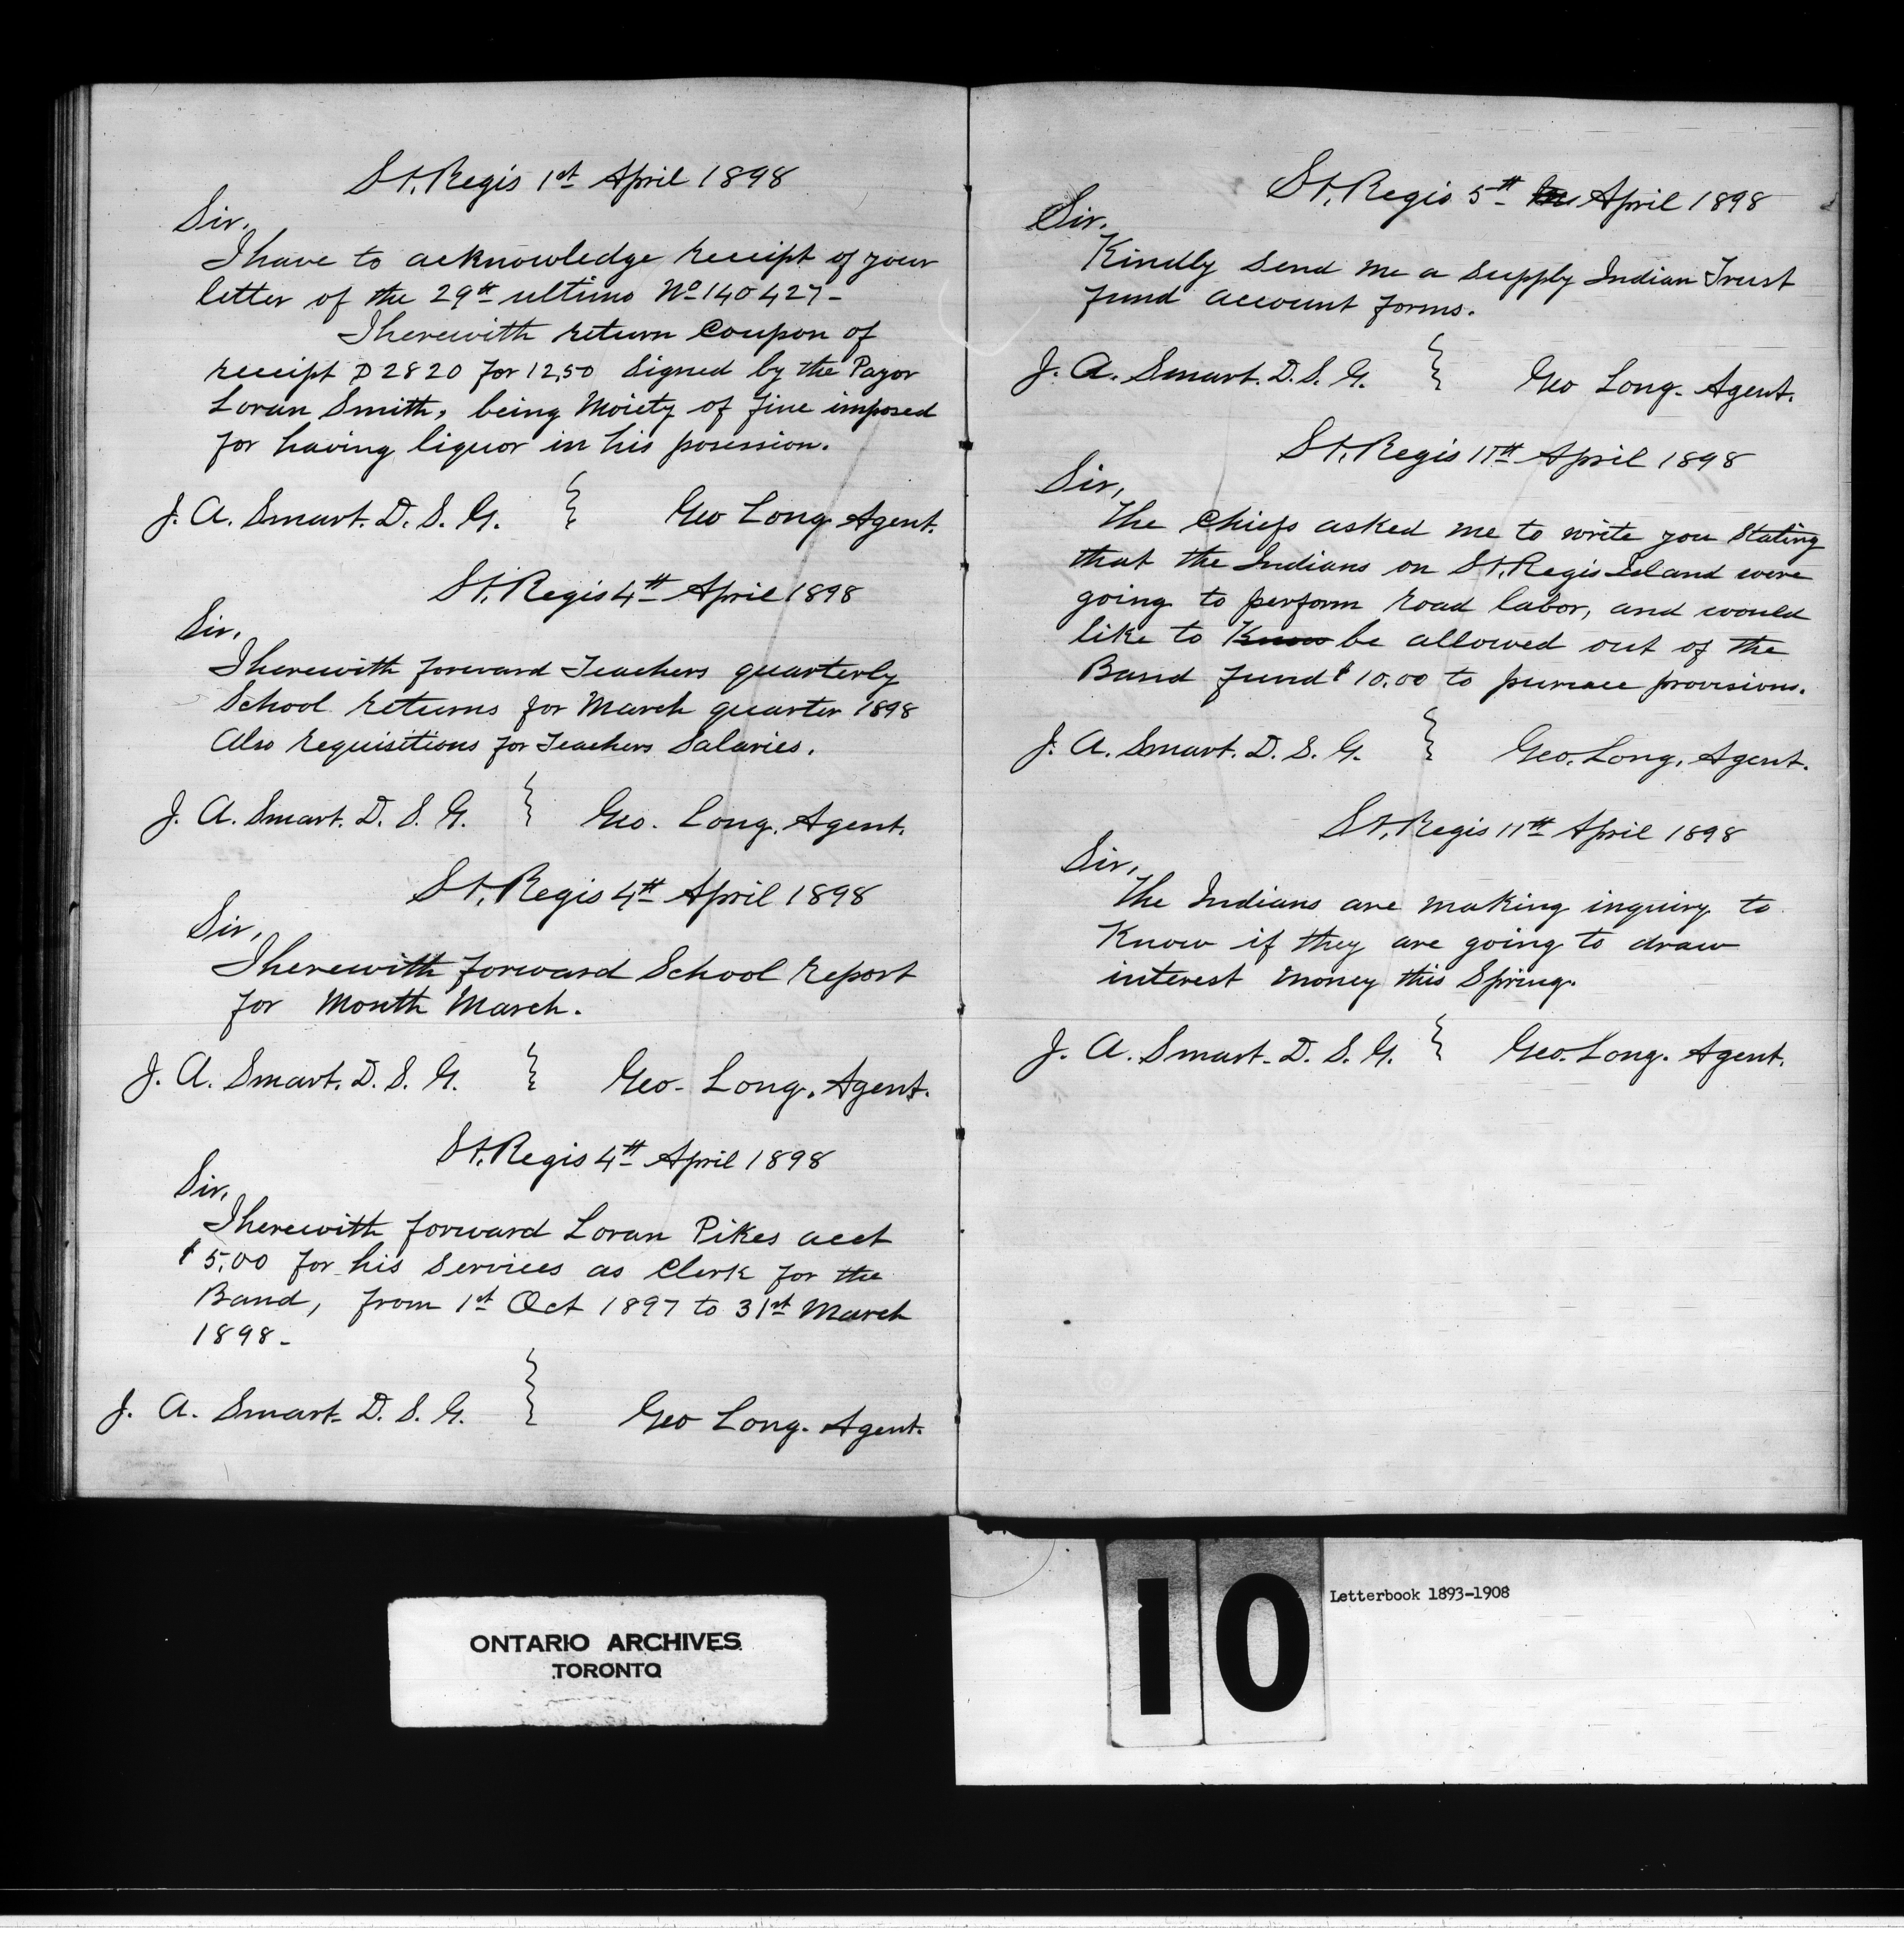 St. Regis 1st April 1898
Sir.
I have to acknowledge receipt of your
letter of the 29th ultimo No 140427-
I herewith return Coupon of
receipt D 2820 for 12,50 Signed by the Payor
Loran Smith, being Moiety of fine imposed
for having liquor in his posession.
J. A. Smart. D. S. G. } Geo Long Agent.
St. Regis 4th April 1898
Sir.
I herewith forward Teachers quarterly
School returns for March quarter 1898
Also requisitions for Teachers Salaries.
J. A. Smart. D. S. G. } Geo. Long. Agent.
St. Regis 4th April 1898
Sir,
I herewith forward School report
for Month March.
J. A. Smart. D. S. G. } Geo- Long. Agent.
St. Regis 4th April 1898
Sir,
I herewith forward Loran Pikes acct
$5,00 for his services as Clerk for the
Band, from 1st Oct 1897 to 31st March
1898-
J. A. Smart- D. S. G. } Geo Long. Agent.
St. Regis 5th April 1898
Sir.
Kindly send me a supply Indian Trust
fund account forms.
J. A. Smart. D. S. G. } Geo Long- Agent.
St. Regis 11th April 1898
Sir,
The Chiefs asked me to write you Stating
that the Indians on St. Regis Island were
going to perform road labor, and would
like to Know be allowed out of the
Band fund $10.00 to provisions.
J. A. Smart. D. S. G. } Geo. Long, Agent.
St. Regis 11th April 1898
Sir,
The Indians are making inquiry to
Know if they are going to draw
interest money this Spring.
J. A. Smart- D. S. G. } Geo. Long. Agent.
ONTARIO ARCHIVES
TORONTO
10
Letterbook 1893-1908